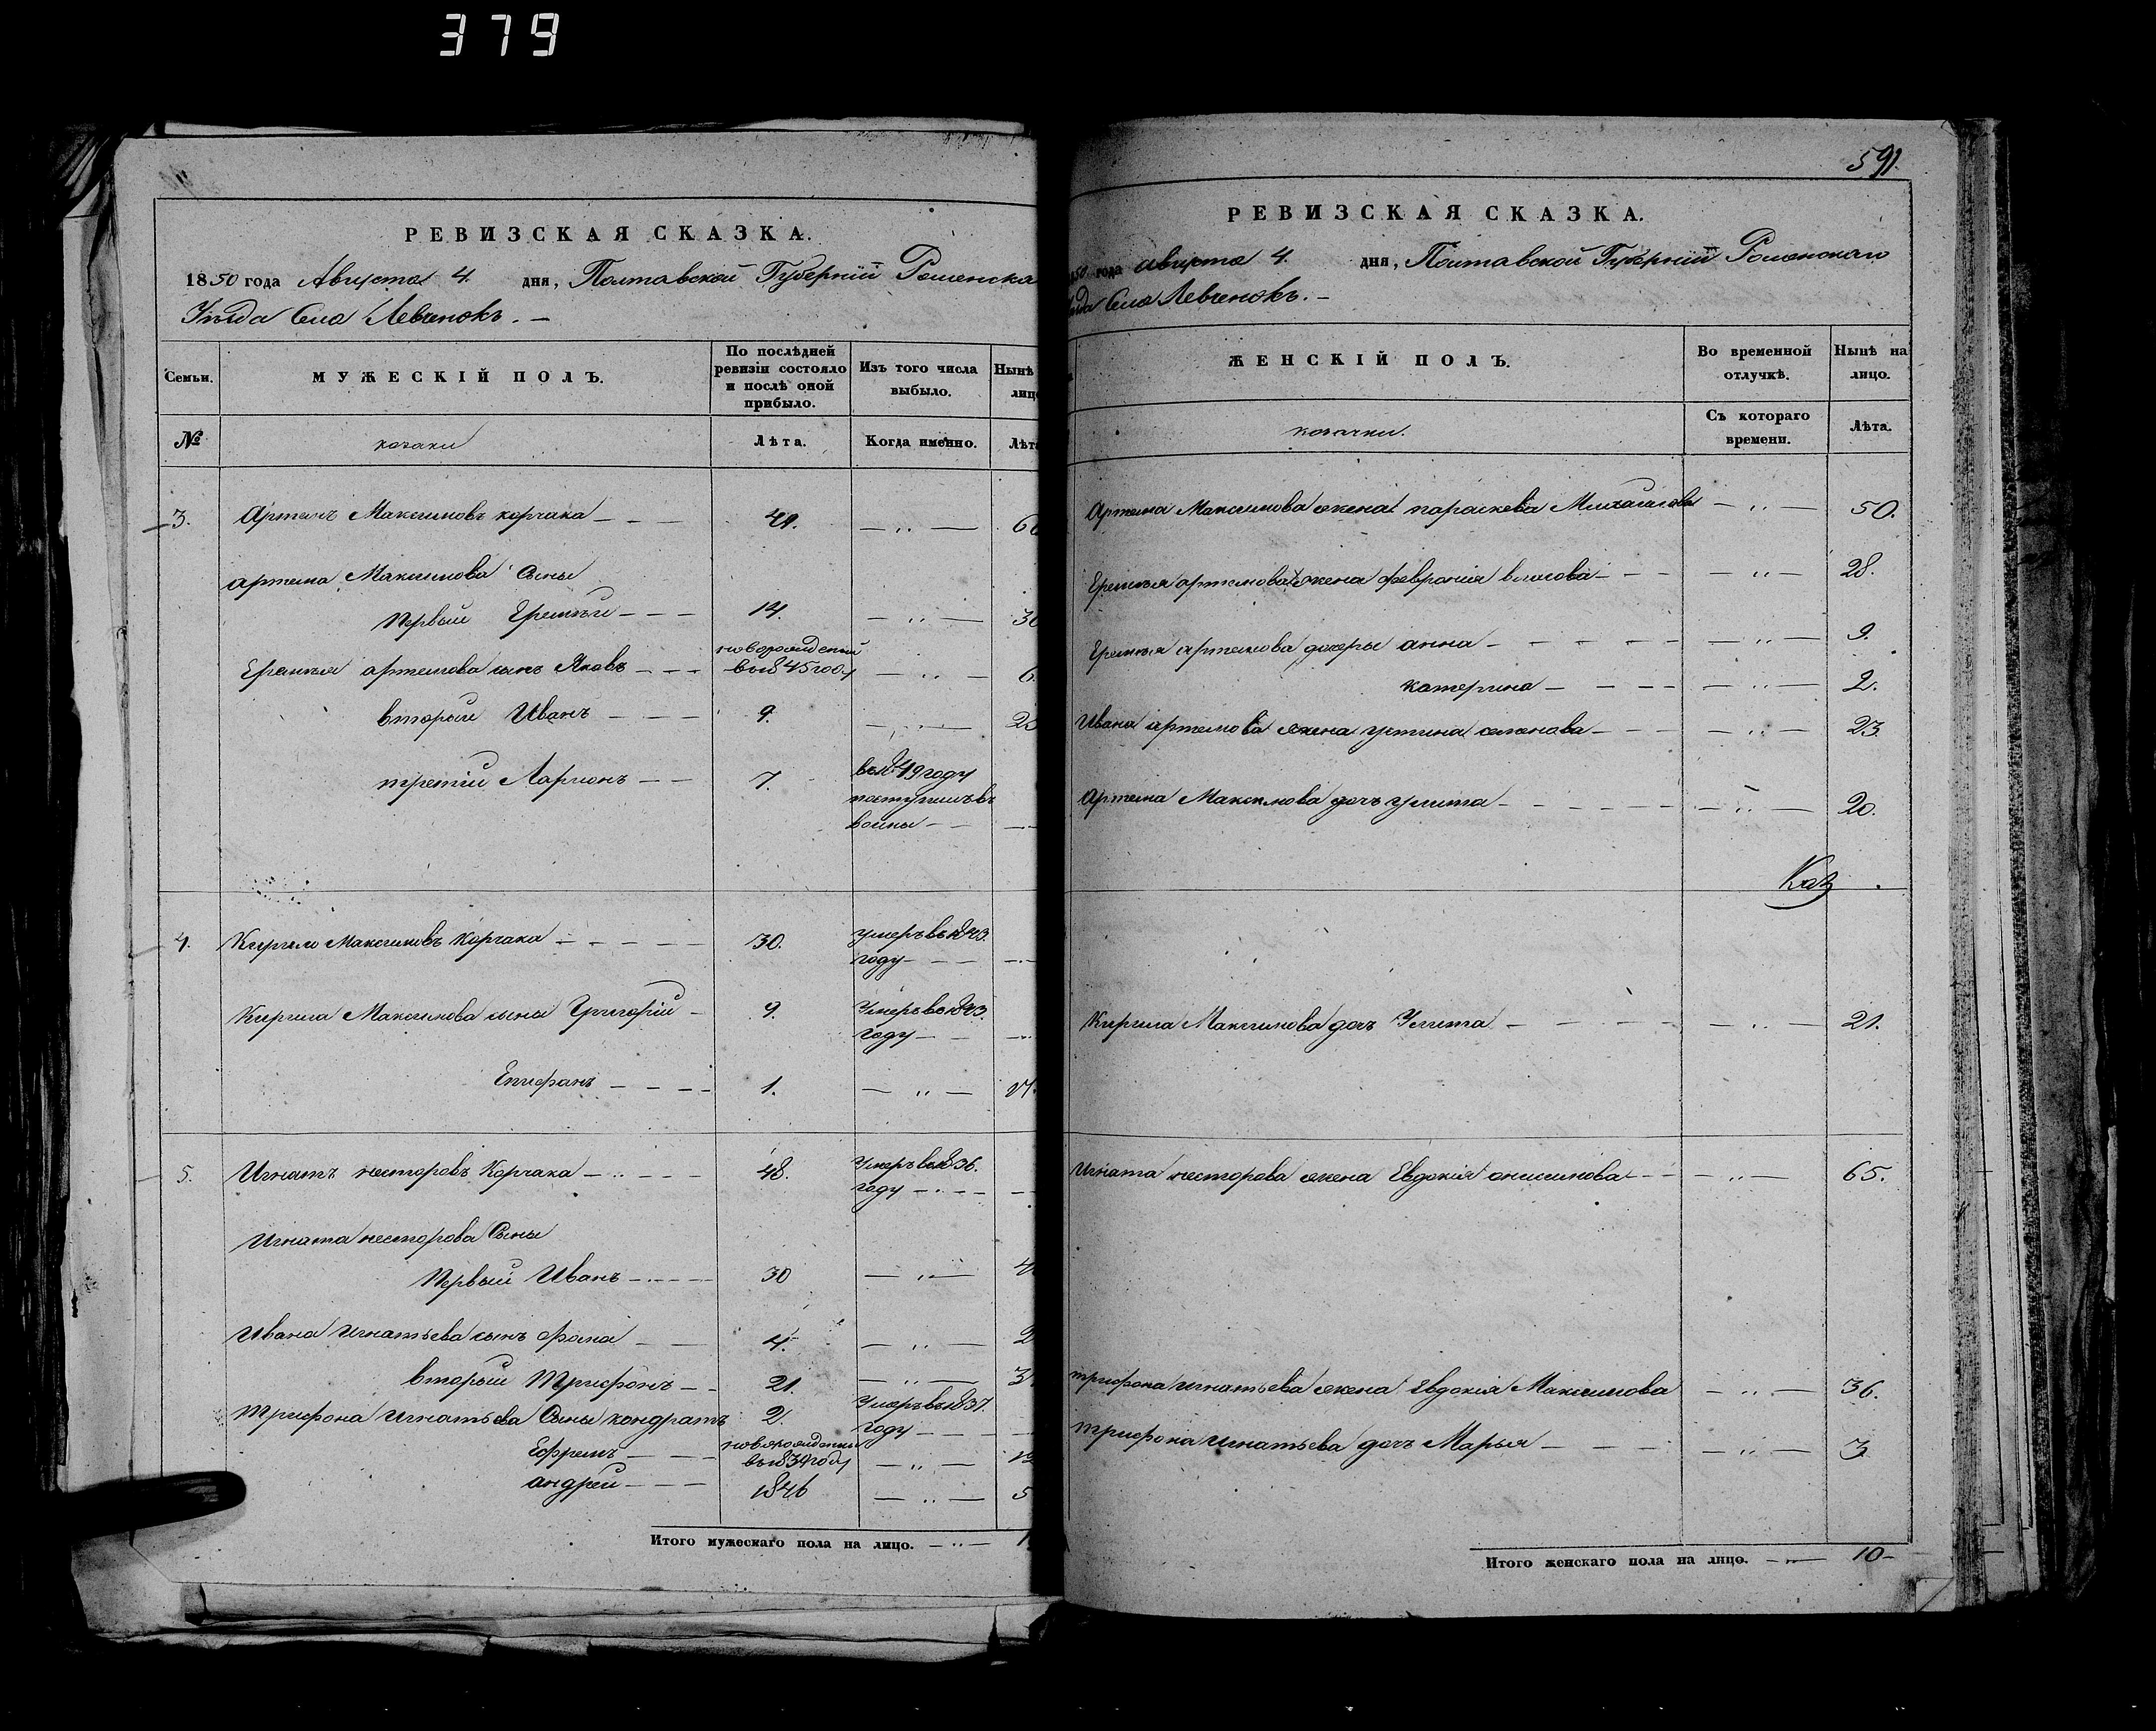 379
РЕВИЗСКАЯ СКАЗКА.
1850 года Августа 4. дня, Полтавской Губерніи Роменска
Уѣзда Села Левченокъ. —
Семьи.
МУЖЕСКІЙ ПОЛЪ.
По послѣдней ревизіи состояло и послѣ оной прибыло.
Изъ того числа выбыло.
Нынѣ
лиц
№
козаки
Лѣта.
Когда именно.
Лѣт
3. Артемъ Максимовъ корчака — — 49. — „ — 6
артема Максимова Сыны
Первый Еремѣй — — — 14. — „ — 3
Еремѣя артемова сынъ Яковъ — — — новорожденный въ 1845 году — „ — 6.
вторый Иванъ — — — 9. — „ — 2
третій Ларионъ — — 7. въ 1849 году
поступилъ въ
воины — —
4. Кирило Максимовъ Корчака — — — — — 30. умеръ въ 1843.
году — — —
Кирила Максимова сыны Григорій — 9. Умеръ въ 1843.
году — —
Епифанъ — — — — 1. — „ —
5. Игнатъ несторовъ Корчака — „ — — — 48. Умеръ въ 1836.
году — „ — —
Игната несторова Сыны
Первый Иванъ — — — — 30 — „ — 4
Ивана игнатьева сынъ фома — — 4. — „ — 2
вторый Трифонъ — — 21. — „ — 3
Трифона Игнатьева Сыны кондратъ 2. Умеръ въ 1837.
году — — —
Ефремъ — — — новорожденный въ 1839 году — „ —
андрей — — — 1846 — „ — 5
Итого мужескаго пола на лицо. — „ — 1
591.
РЕВИЗСКАЯ СКАЗКА.
года августа 4. дня, Полтавской Губерніи Роменскаго
Села Левченокъ. —
ЖЕНСКІЙ ПОЛЪ.
Во временной отлучкѣ.
Нынѣ на лицо.
козачки.
Съ котораго времени.
Лѣта.
Артема Максимова жена параскева Михайлова — „ — 50.
Еремѣя артемова жена феврония власова — — — — „ — 28.
Еремѣя артемова дочеры анна — — — — — — „ — 9.
катерина — — — — — „ — 2.
Ивана артемова жена устина семенова — — — — „ — 23
Артема Максимова дочъ улита — — — — — — — „ — 20.
Кирила Максимова дочъ Улита — — — — — — „ — 21.
Игната несторова жена Евдокия онисимова — — — „ — 65.
трифона Игнатьева жена Евдокия Максимова — „ — 36.
трифона игнатьева дочъ Марья — — — — — „ — 3
Итого женскаго пола на лицо. — „ — 10 —